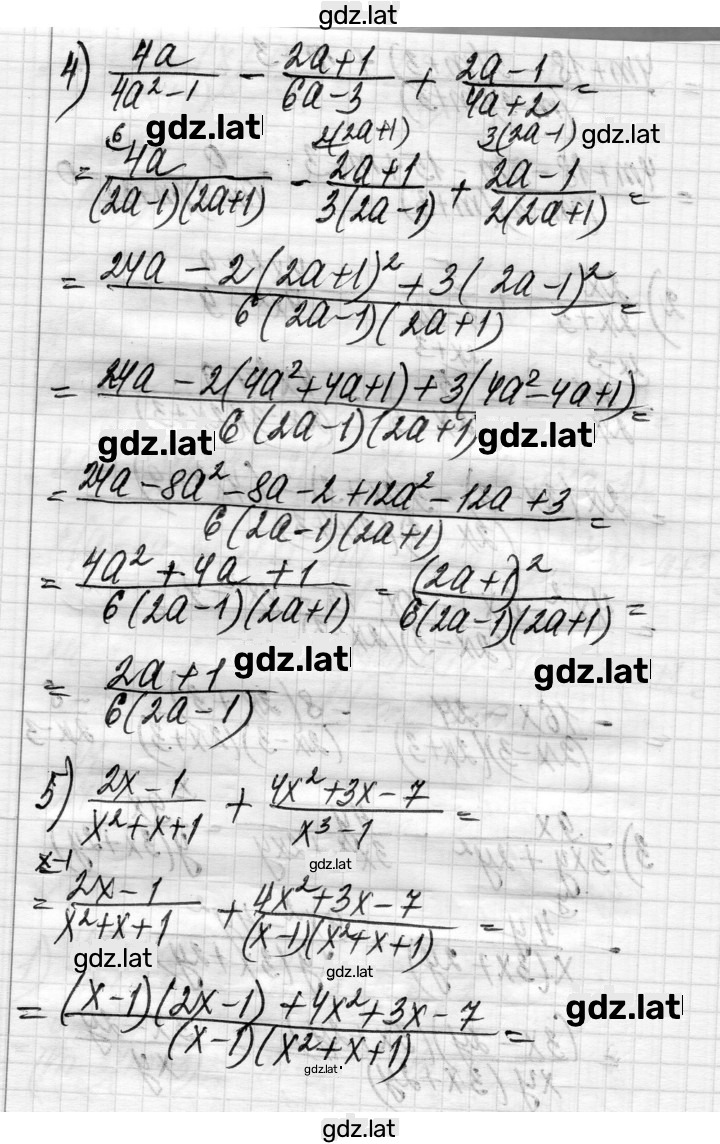 gdz.lat
4) 4a/(4a²-1) - (2a+1)/(6a-3) + (2a-1)/(4a+2) =
gdz.lat
6 2(2a+1) 3(2a-1) gdz.lat
= 4a/((2a-1)(2a+1)) - (2a+1)/(3(2a-1)) + (2a-1)/(2(2a+1)) =
= (24a - 2(2a+1)² + 3(2a-1)²)/(6(2a-1)(2a+1)) =
= (24a - 2(4a²+4a+1) + 3(4a²-4a+1))/(6(2a-1)(2a+1) =
gdz.lat gdz.lat
= (24a - 8a² - 8a - 2 + 12a² - 12a + 3)/(6(2a-1)(2a+1)) =
= (4a² + 4a + 1)/(6(2a-1)(2a+1)) = (2a+1)²/(6(2a-1)(2a+1)) =
gdz.lat gdz.lat
= (2a+1)/(6(2a-1))
5) (2x-1)/(x²+x+1) + (4x²+3x-7)/(x³-1) =
gdz.lat
x-1
= (2x-1)/(x²+x+1) + (4x²+3x-7)/((x-1)(x²+x+1)) =
gdz.lat gdz.lat
= ((x-1)(2x-1) + 4x²+3x-7)/((x-1)(x²+x+1)) =
gdz.lat
gdz.lat
gdz.lat